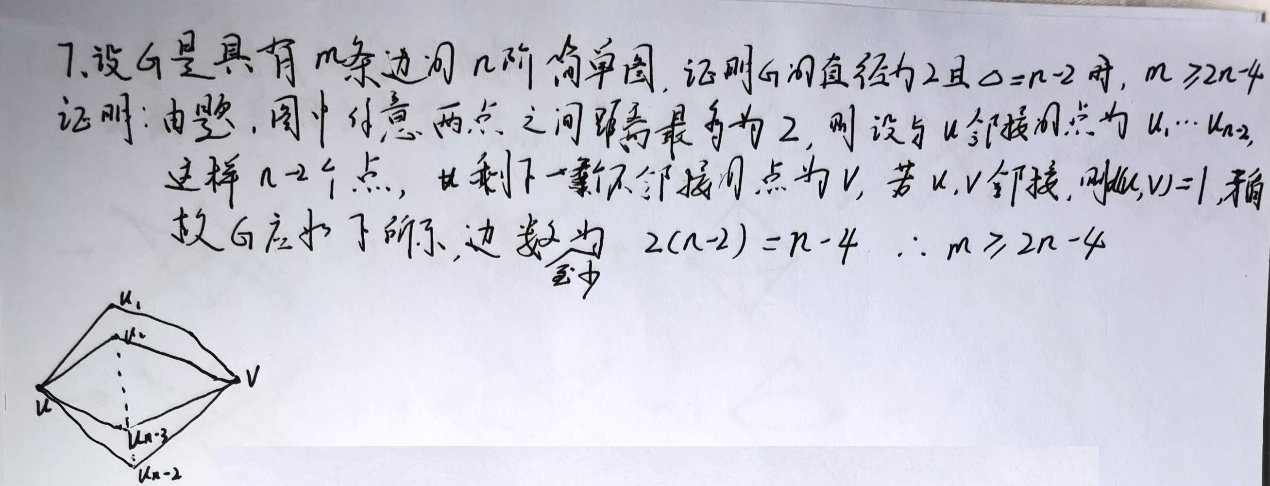 7.设G是具有m条边的n阶简单图,证明G的直径为2且Δ=n-2时,m≥2n-4
证明:由题,图中任意两点之间距离最多为2,则设与u邻接的点为u₁…uₙ₋₂,
这样n-2个点,剩下一个不邻接的点为V,若u,V邻接,则d(u,V)=1,矛盾
故G应如下所示,边数至少为 2(n-2)=n-4 ∴m≥2n-4
u₁
u₂
u
V
uₙ₋₃
uₙ₋₂